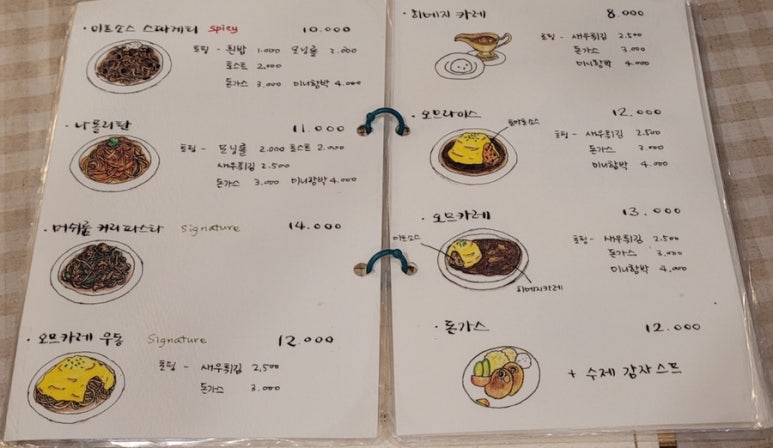 · 미트소스 스파게티 spicy 10.000
토핑 - 흰밥 1.000 모닝롤 2.000
토스트 2.000
돈가스 3.000 미니함박 4.000
· 나폴리탄 11.000
토핑 - 모닝롤 2.000 토스트 2.000
새우튀김 2.500
돈가스 3.000 미니함박 4.000
· 머쉬룸 커리 파스타 Signature 14.000
· 오므카레 우동 Signature 12.000
토핑 - 새우튀김 2,500
돈가스 3.000
· 히메지 카레 8.000
토핑 - 새우튀김 2.500
돈가스 3.000
미니함박 4.000
· 오므라이스 12.000
토마토소스
토핑 - 새우튀김 2.500
돈가스 3.000
미니함박 4.000
· 오므카레 13.000
미트소스
토핑 - 새우튀김 2.500
돈가스 3.000
미니함박 4,000
히메지카레
· 돈가스 12.000
+ 수제 감자스프